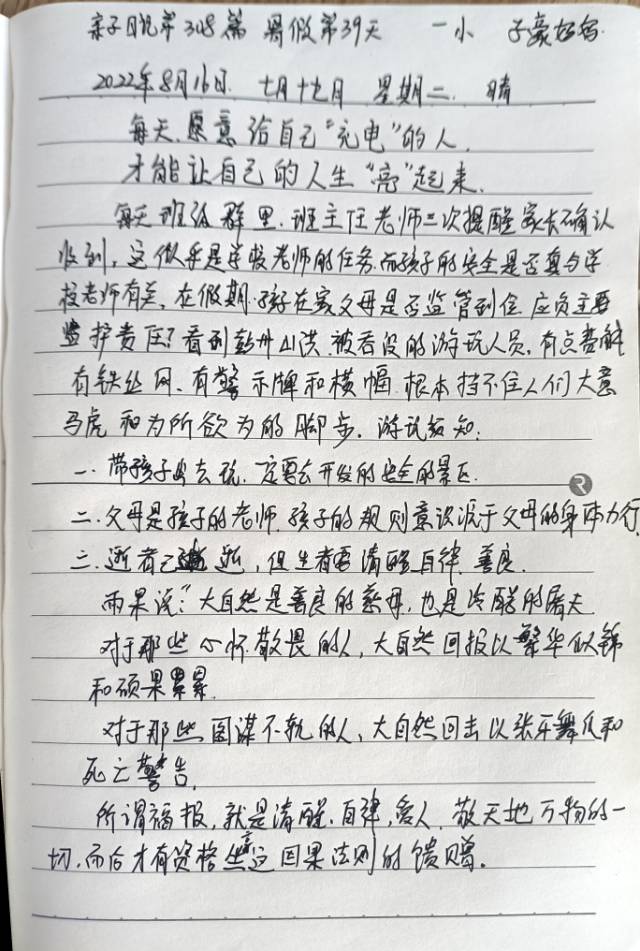 亲子日记第308篇 暑假第39天 一小 子豪妈妈
2022年8月16日. 七月十九日 星期二. 晴
每天愿意给自己“充电”的人,
才能让自己的人生“亮”起来.
每天班级群里.班主任老师三次提醒家长确认
收到,这似乎是学校老师的任务.而孩子的安全是否真与学
校老师有关,在假期.孩子在家父母是否监管到位.应负主要
监护责任?看到彭州山洪.被吞没的游玩人员,有点费解
有铁丝网、有警示牌和横幅.根本挡不住人们大意
马虎和为所欲为的脚步.游玩须知:
一.带孩子出去玩.一定要去开发的安全的景区.
二.父母是孩子的老师.孩子的规则意识源于父母的身体力行
三.逝者已逝,但生者要清醒自律、善良.
雨果说:“大自然是善良的慈母,也是冷酷的屠夫
对于那些心怀敬畏的人,大自然回报以繁华似锦
和硕果累累.
对于那些图谋不轨的人,大自然回击以张牙舞爪和
死亡警告.
所谓福报,就是清醒.自律,爱人.敬天地万物的一
切.而后才有资格享这因果法则的馈赠.